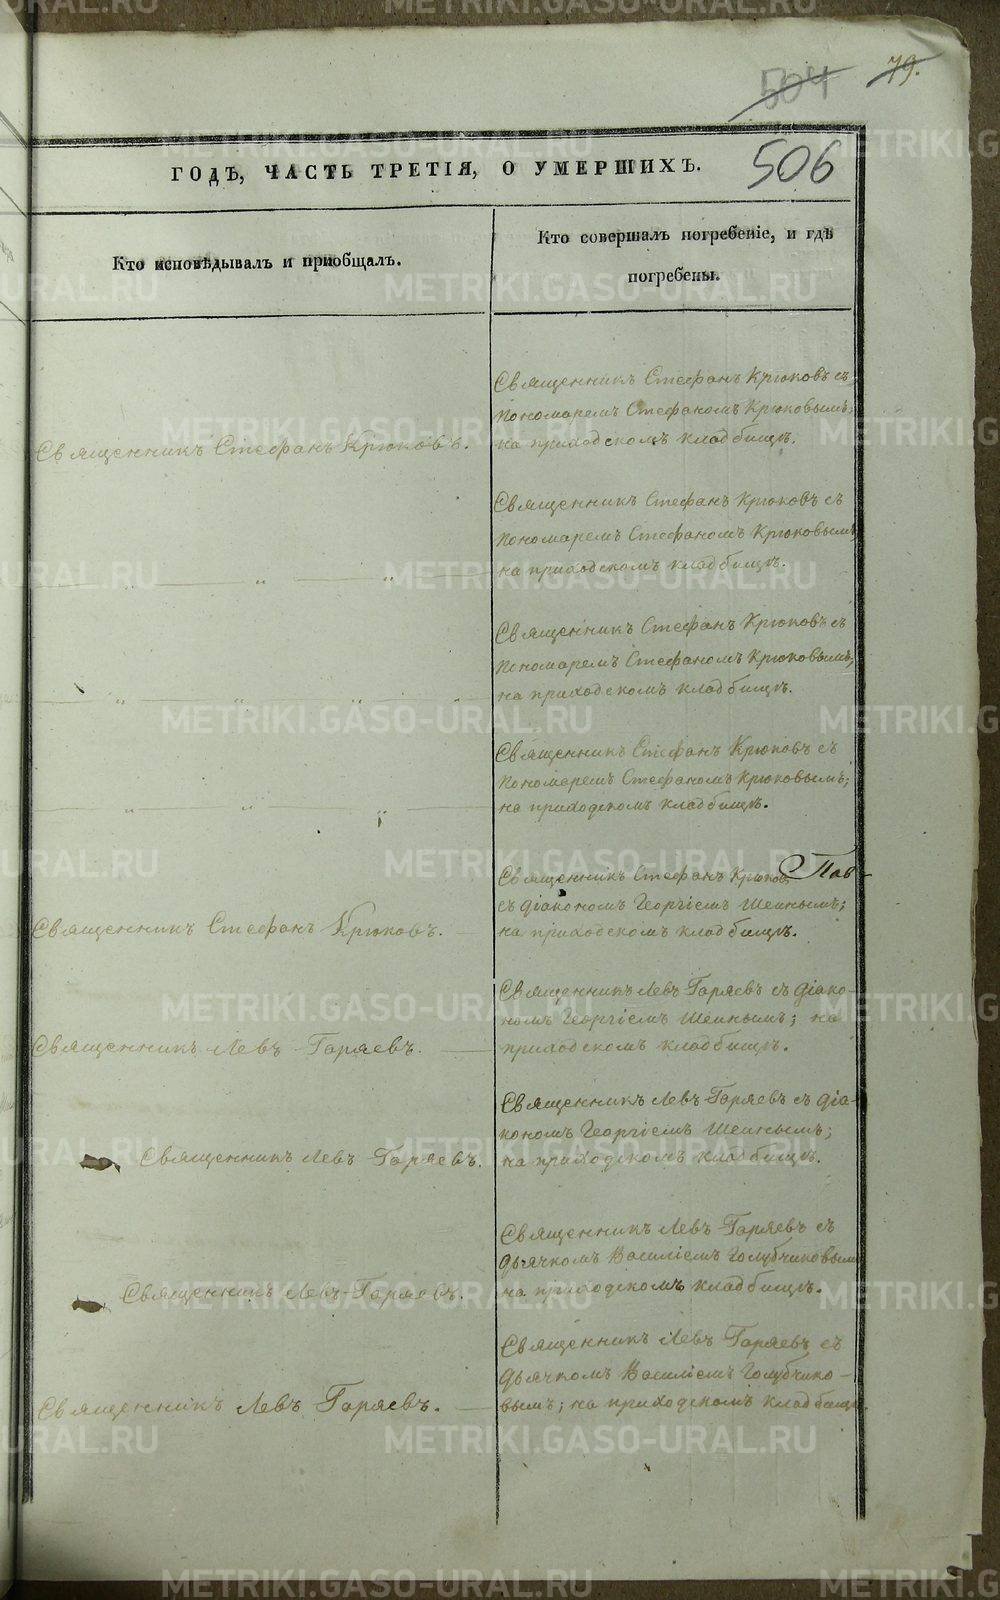 79.
504
506
ГОДЪ, ЧАСТЬ ТРЕТІЯ, О УМЕРШИХЪ.
Кто исповѣдывалъ и пріобщалъ.
Кто совершалъ погребеніе, и гдѣ
погребены.
Священникъ Стефанъ Крюковъ съ
пономаремъ Стефаномъ Крюковымъ;
на приходскомъ кладбищѣ.
Священникъ Стефанъ Крюковъ.
Священникъ Стефанъ Крюковъ съ
пономаремъ Стефаномъ Крюковымъ
на приходскомъ кладбищѣ.
Священникъ Стефанъ Крюковъ съ
пономаремъ Стефаномъ Крюковымъ;
на приходскомъ кладбищѣ.
Священникъ Стефанъ Крюковъ съ
пономаремъ Стефаномъ Крюковымъ;
на приходскомъ кладбищѣ.
Священникъ Стефанъ Крюковъ
съ діакономъ Георгіемъ
на приходскомъ кладбищѣ.
Священникъ Стефанъ Крюковъ.
Священникъ Левъ Гаряевъ съ діако-
номъ Георгіемъ на
приходскомъ кладбищѣ.
Священникъ Левъ Гаряевъ.
Священникъ Левъ Гаряевъ съ діа-
кономъ Георгіемъ
на приходскомъ кладбищѣ.
Священникъ Левъ Гаряевъ.
Священникъ Левъ Гаряевъ съ
дьячкомъ Василіемъ Голубчиковымъ
на приходскомъ кладбищѣ.
Священникъ Левъ Гаряевъ.
Священникъ Левъ Гаряевъ съ
дьячкомъ Василіемъ Голубчико-
вымъ; на приходскомъ кладбищѣ.
Священникъ Левъ Гаряевъ.
METRIKI.GASO-URAL.RU